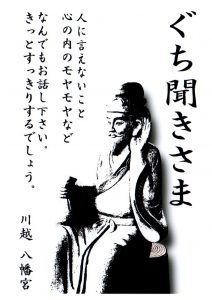 ぐち聞きさま
人に言えないこと
心の内のモヤモヤなど
なんでもお話し下さい。
きっとすっきりするでしょう。
川越 八幡宮